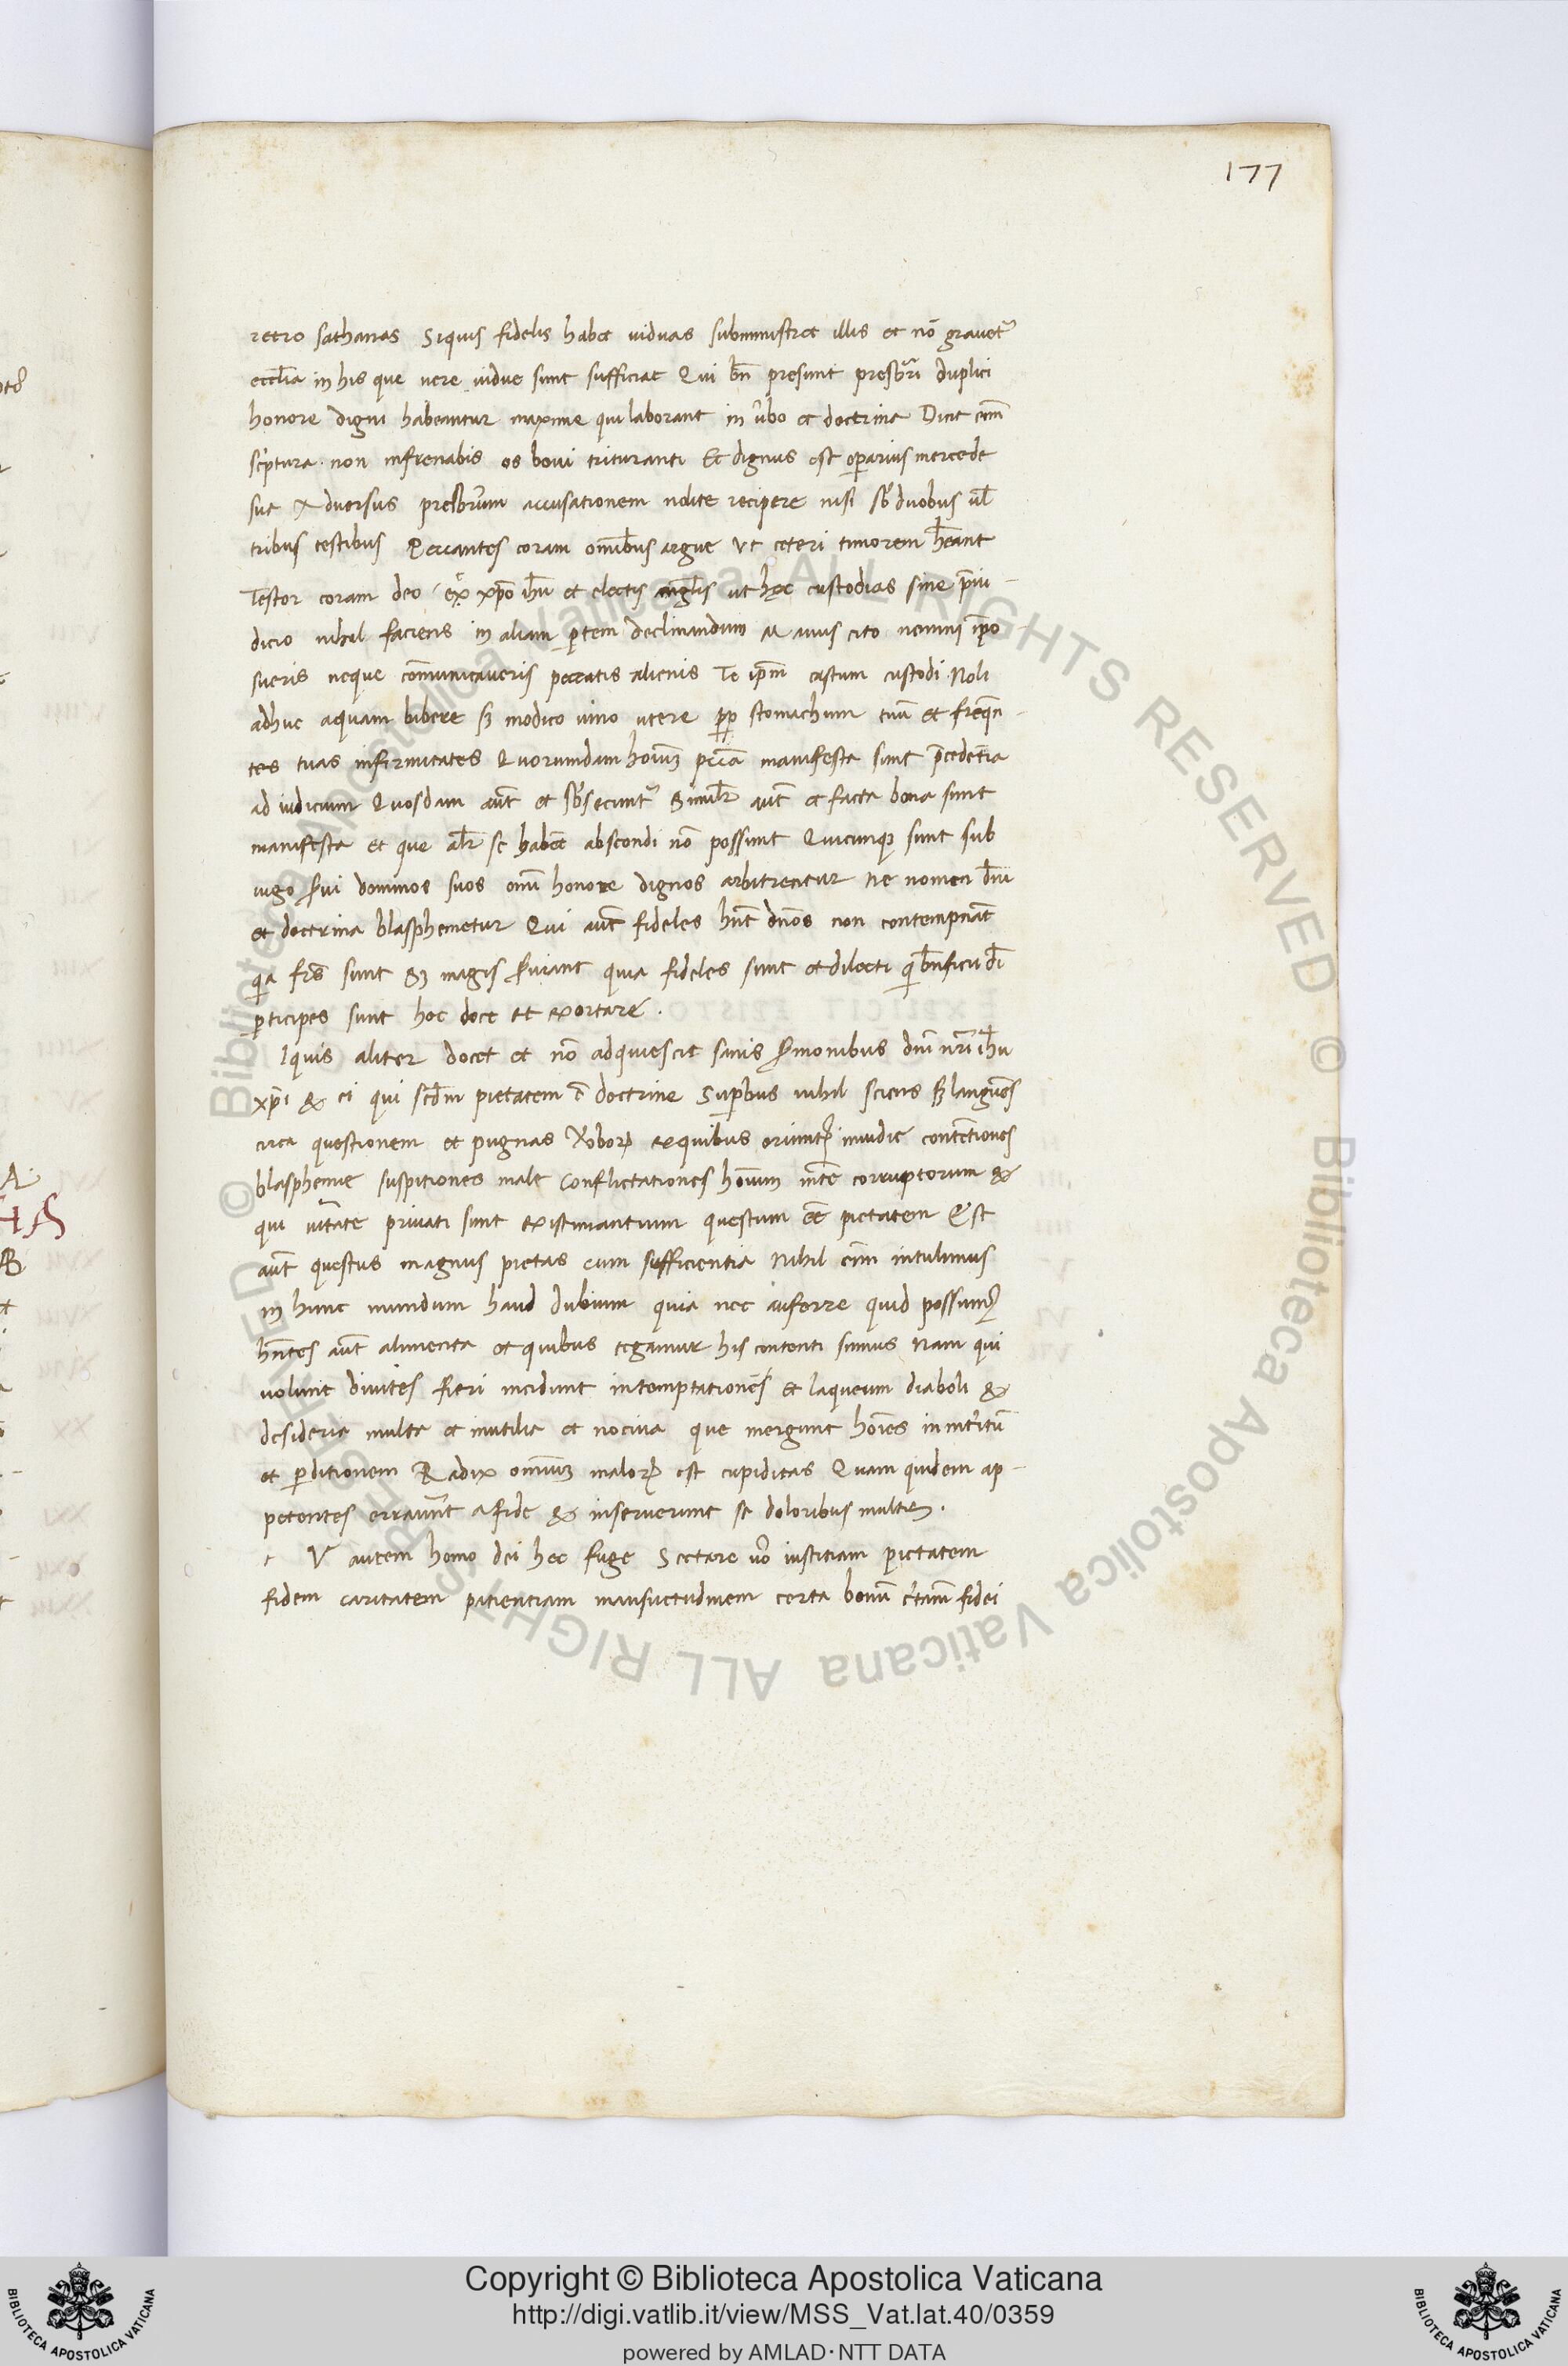 177
retro sathanas Siquis fidelis habet uiduas subministret illis et nō grauet᷑
eccl̄ia in his que uere uidue sunt sufficiat Qui bn̄ presunt presbr̄i duplici
honore digni habeantur maxime qui laborant in ūbo et doctrina Dicit eīm
sc̄ptura non infrenabis os boui trituranti Et dignus est oꝑarius mercede
sua Aduersus presbr̄um accusationem nolite recipere nisi sb̄ duobus ul̄
tribus testibus Peccantes coram omīb̄us argue Vt ceteri timorem hēant
Testor coram deo et xp̄o ih̄u et electis angl̄is ut hęc custodias sine p̄iu-
dicio nihil faciens in aliam ꝑtem declinandum Manus cito nemini īpo
sueris neque cōmunicaueris peccatis alienis Te ip̄m castum custodi Noli
adhuc aquam bibere sꝫ modico uino utere ꝓp̄ stomachum tuū et freqn̄-
tes tuas infirmitates Quorumdam hoīuꝫ pccā manifesta sunt p̄cedentia
ad iudicium Quosdam aūt et sb̄secunt᷑ Simil̄r aūt et facta bona sunt
manifesta et que al̄r se habēt abscondi nō possunt Quicunqꝫ sunt sub
iugo s̄ui dominos suos omī honore dignos arbitrentur ne nomen dn̄i
et doctrina blasphemetur Qui aūt fideles hn̄t dn̄os non contempnāt
qͥa frs̄ sunt sꝫ magis s̄uiant quia fideles sunt et dilecti qͥ bn̄ficii dī
ꝑticipes sunt hoc doce et exortare .
Iquis aliter docet et nō adquiescit sanis s̄monibus dn̄i nr̄i ih̄u
xp̄i & ei qui scd̄m pietatem ē doctrine Suꝑbus nihil sciens sꝫ languēs
circa questionem et pugnas ūboꝝ ex quibus oriunt᷑ inuidie contētiones
blasphemie suspitiones male Conflictationes hoīum mēte corruptorum &
qui ūitate priuati sunt existimantium questum eē pietatem Est
aūt questus magnus pietas cum sufficientia Nihil eīm intulimus
in hunc mundum haud dubium quia nec auferre quid possumꝰ
hn̄tes aūt alimenta et quibus tegamur his contenti simus Nam qui
uolunt diuites fieri incidunt in temptationēs et laqueum diaboli &
desideria multa et inutilia et nociua que mergunt hoīes in int̄itū
et ꝑditionem Radix omīuꝫ maloꝝ est cupiditas Quam quidem ap-
petentes errauer̄t a fide & inseruerunt se doloribus multis .
t V autem homo dei hec fuge Sectare uō iustitiam pietatem
fidem caritatem patientiam mansuetudinem certa bonū c̄tam̄ fidei
Copyright © Biblioteca Apostolica Vaticana
http://digi.vatlib.it/view/MSS_Vat.lat.40/0359
powered by AMLAD·NTT DATA